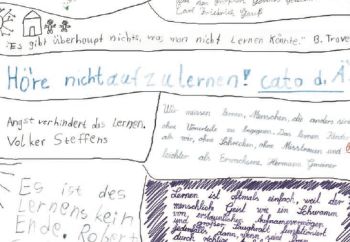 Carl Friedrich Gauß
"Es gibt überhaupt nichts, was man nicht Lernen Könnte." B. Trave
Höre nicht auf zu lernen! cato d. Ä
Angst verhindert das Lernen.
Volker Steffens
Wir müssen lernen, Menschen, die anders sin
ohne Vorurteile zu begegnen. Das lernen Kinder
als wir, ohne Schrecken, ohne Misstrauen und
leichter als Erwachsene. Hermann Gmeiner
Es ist des
Lernens kein
Ende. Robert
Lernen ist oftmals einfach, weil der
menschliche Geist wie ein Schwamm
von erstaunlicher Aufnahmevermögen
und großer Saugkraft funktioniert